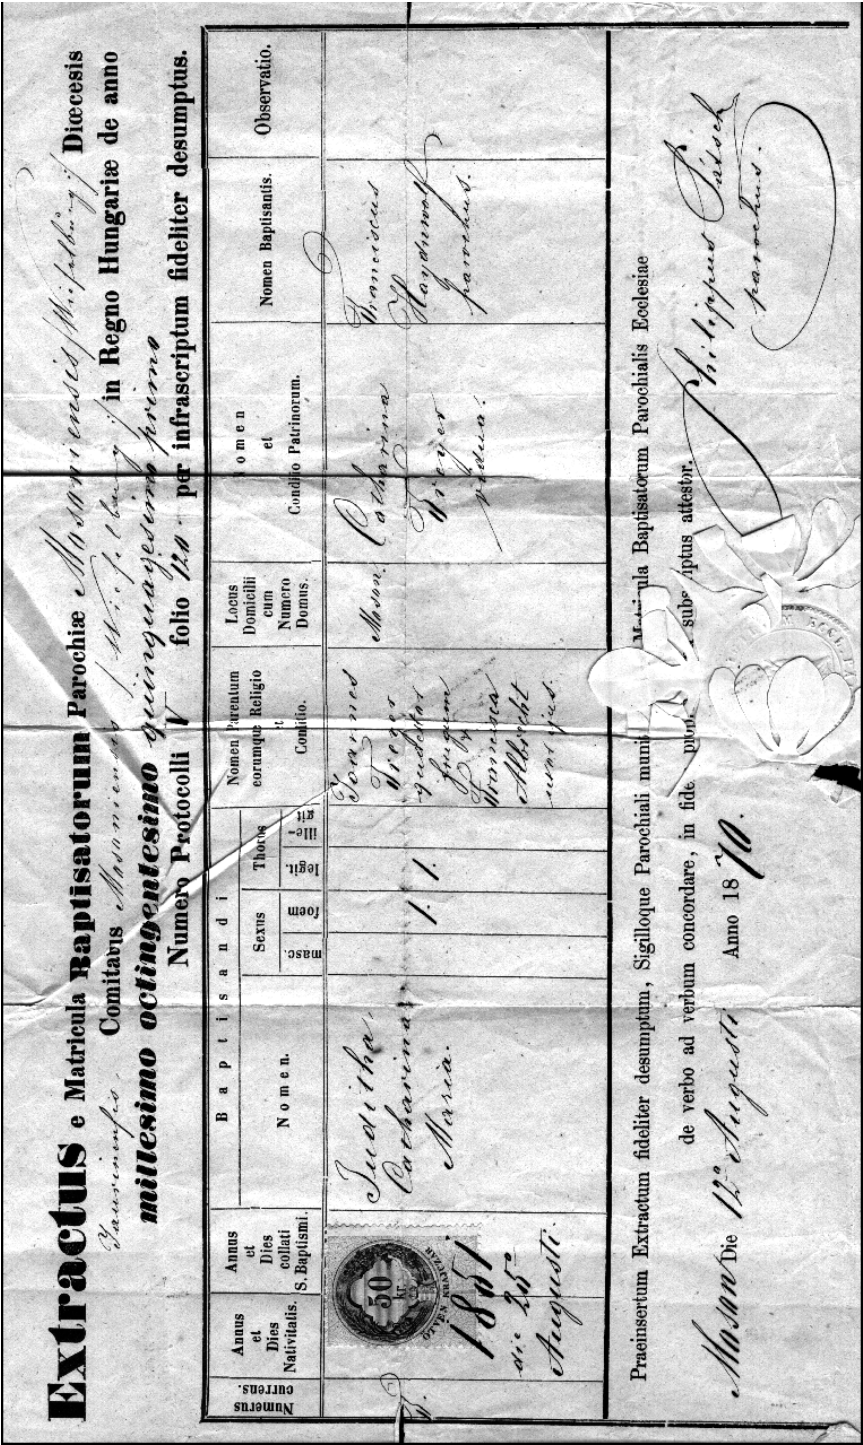 Extractus e Matricula Baptisatorum Parochiæ Mosoniensis /Wieselburg/ Diœcesis
Jaurinensis. Comitatus Mosoniensis /Wieselburg/ in Regno Hungariæ de anno
millesimo octingentesimo quinquagesimo primo
Numero Protocolli V folio 120 per infrascriptum fideliter desumptus.
Numerus
currens.
Annus
et
Dies
Nativitatis.
Annus
et
Dies
collati
S. Baptismi.
Baptisandi
Nomen.
Sexus
masc.
foem
Thorus
legit.
ille-
git
Nomen Parentum
eorumque Religio
et
Conditio.
Locus
Domicilii
cum
Numero
Domus.
Nomen
et
Conditio Patrinorum.
Nomen Baptisantis.
Observatio.
50
kr
ÖTVEN KRAJCZÁR
1851
die 25a
Augusti.
Juditha
Catharina
Maria.
1.
1.
Joannes
Dreyer
Francisca
Albrecht
Moson.
Catharina
Dreyer
vidua.
Franciscus
parochus.
Praeinsertum Extractum fideliter desumptum, Sigilloque Parochiali Matricula Baptisatorum Parochialis Ecclesiae
de verbo ad verbum concordare, in fide subscriptus attestor.
Moson Die 12a Augusti Anno 1870.
Philippus
parochus.